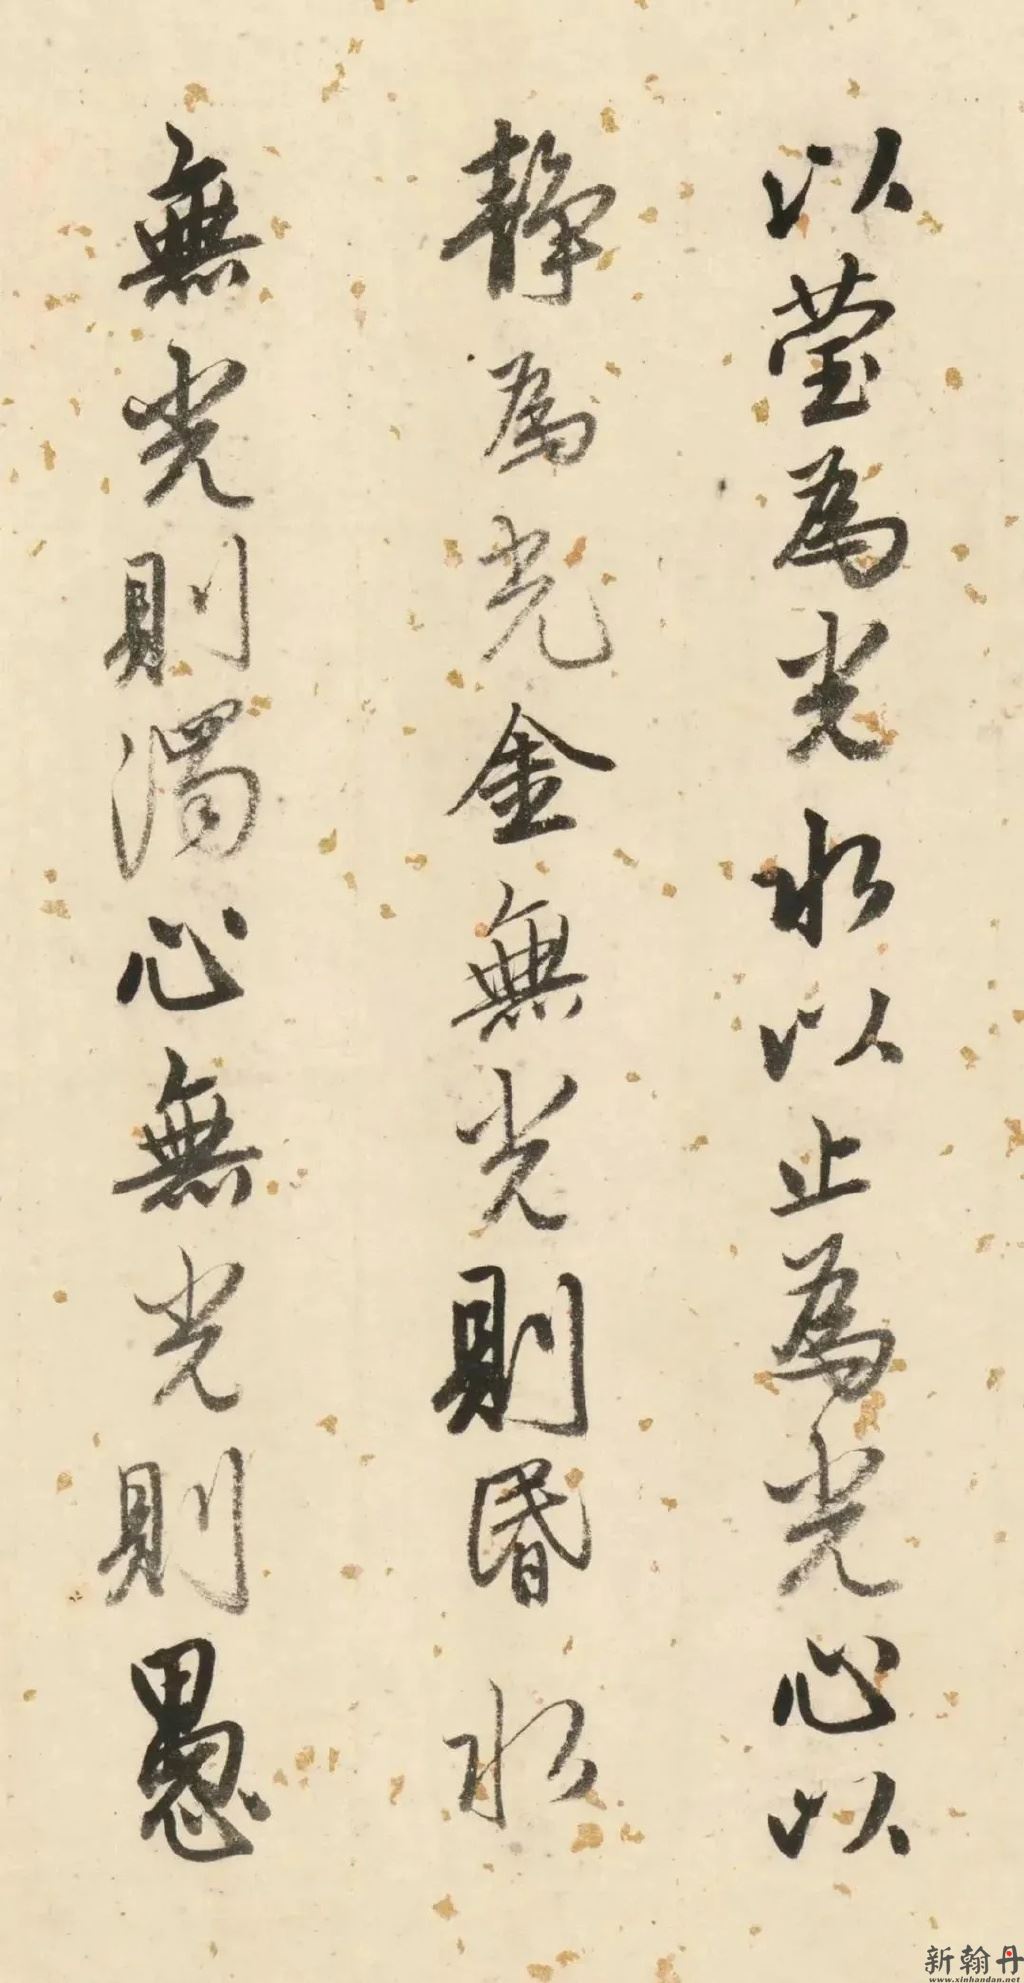 以莹為光水以止為光心以
静為光金無光則昬水
無光則濁心無光則愚
新翰丹
www.xinhandan.net